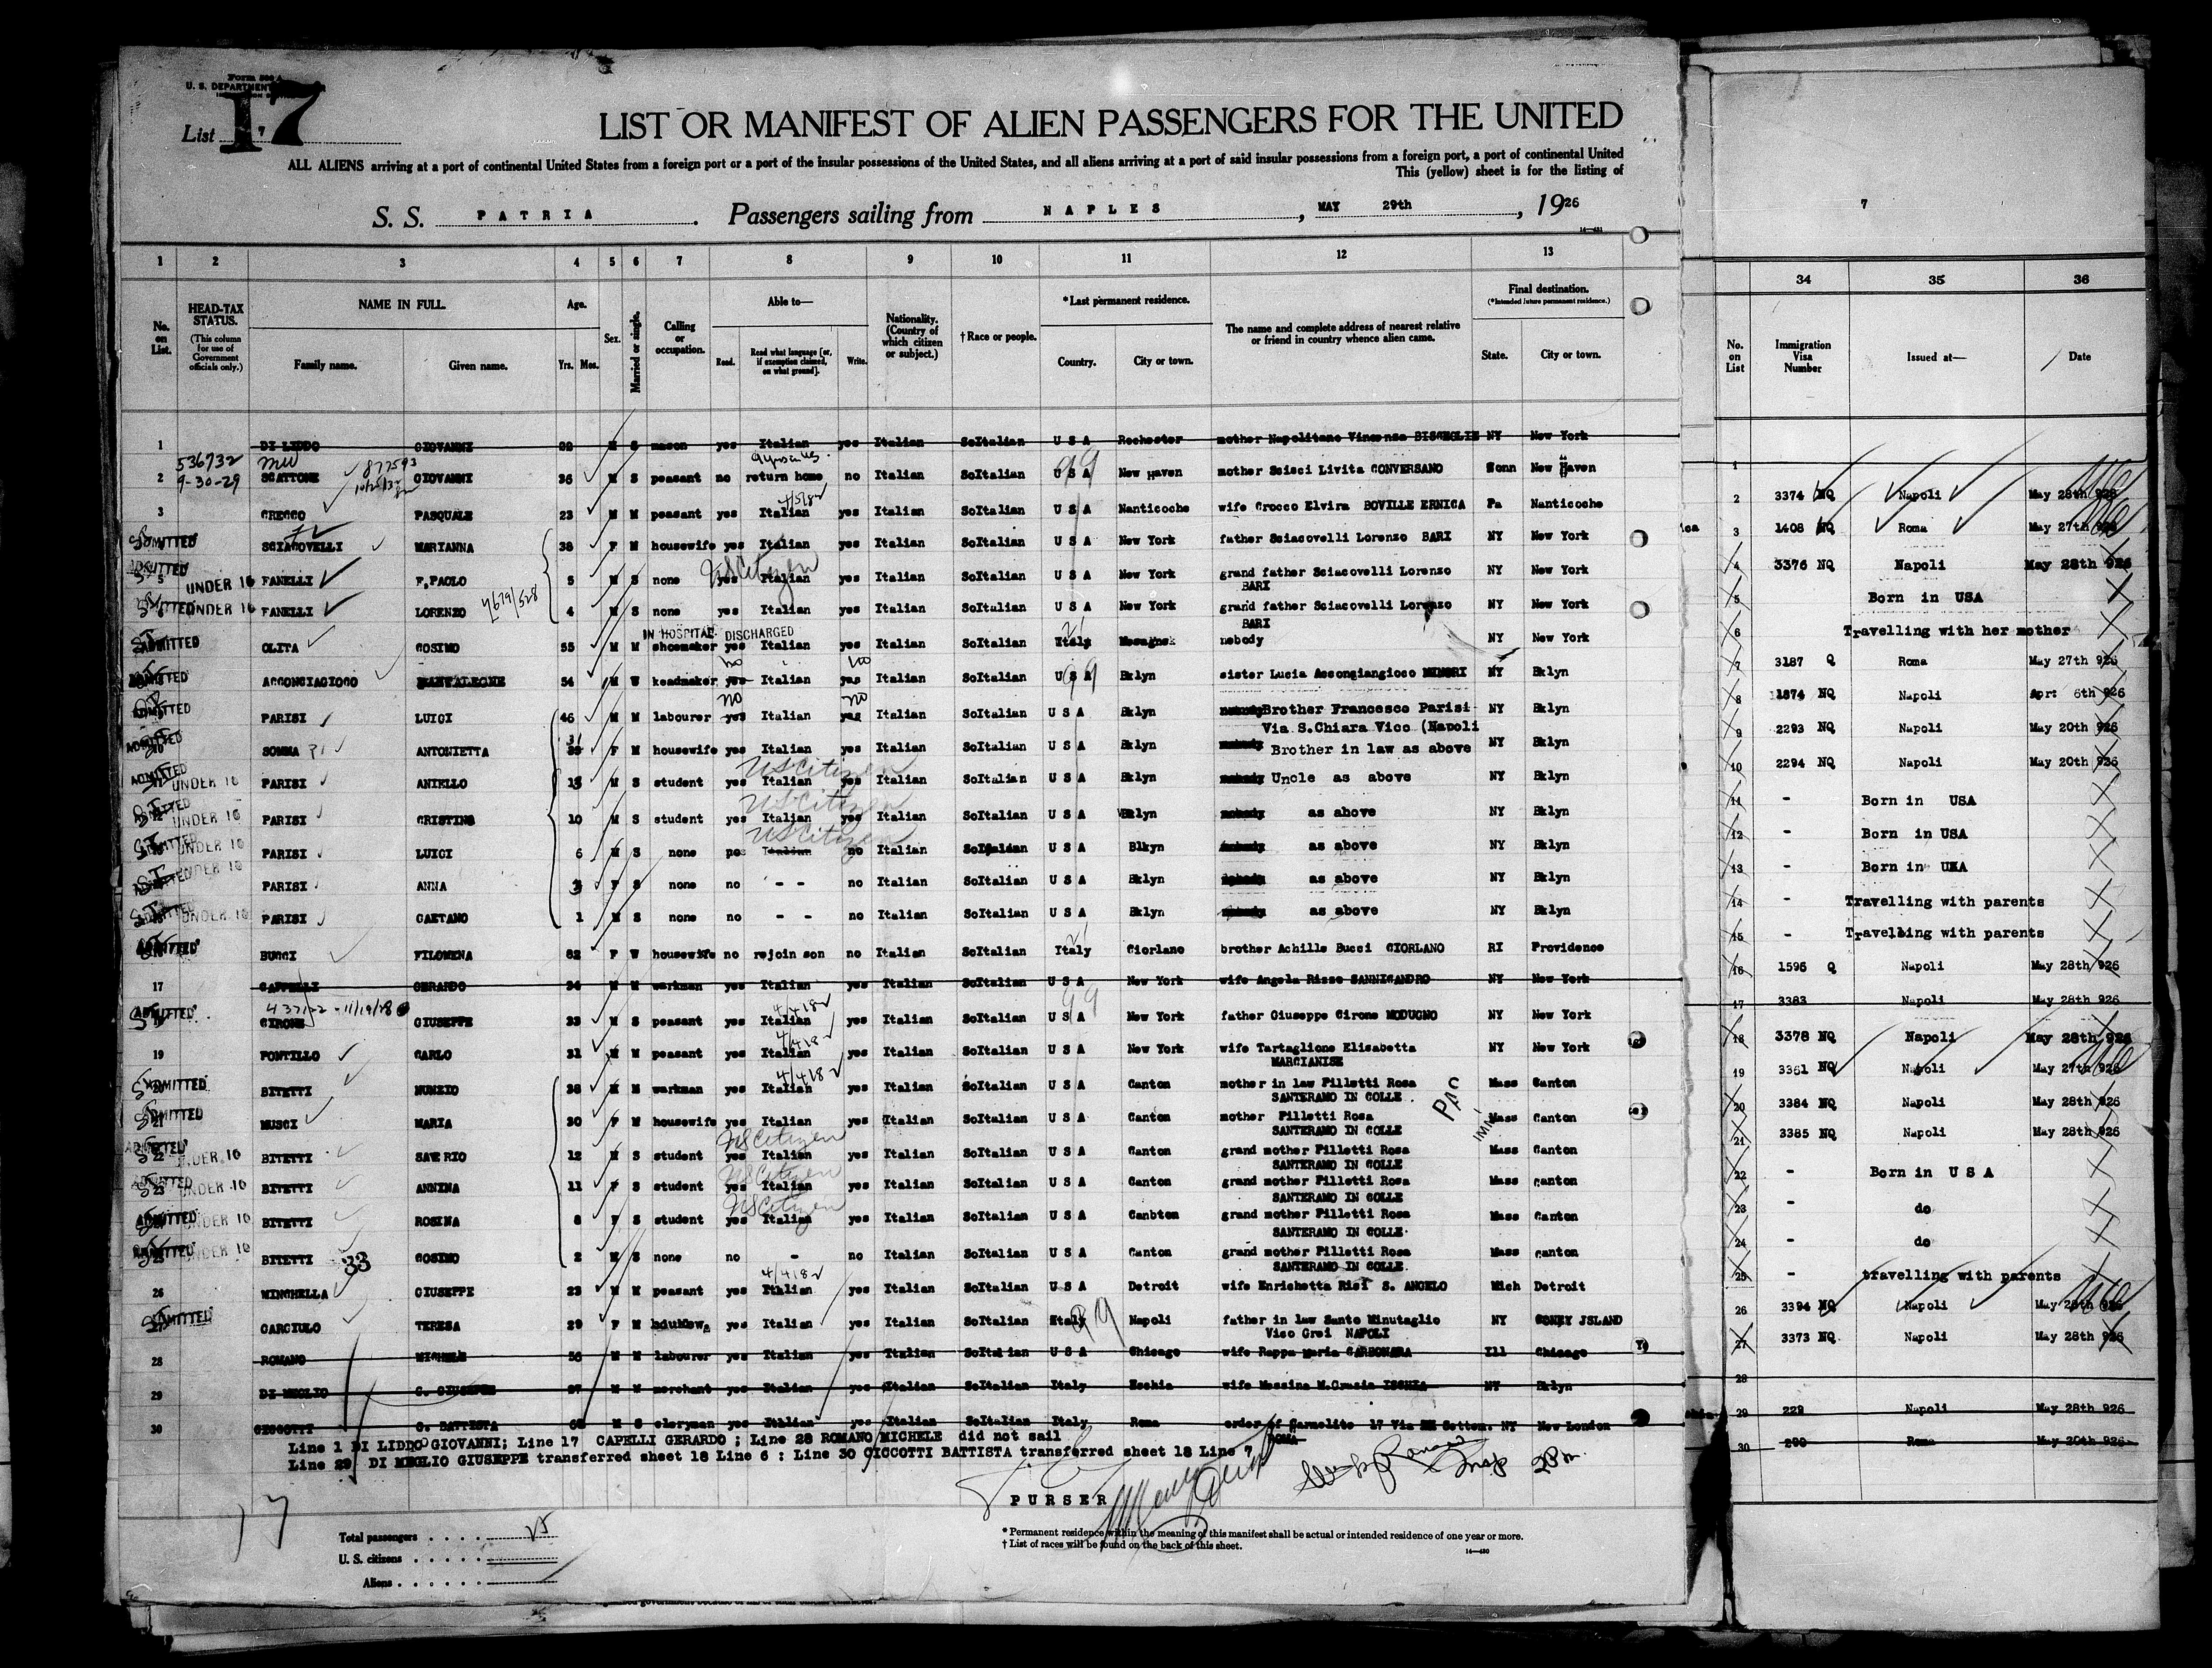 Form 500 A
U. S. DEPARTMENT
List 7
17
LIST OR MANIFEST OF ALIEN PASSENGERS FOR THE UNITED
ALL ALIENS arriving at a port of continental United States from a foreign port or a port of the insular possessions of the United States, and all aliens arriving at a port of said insular possessions from a foreign port, a port of continental United
This (yellow) sheet is for the listing of
S. S. PATRIA. Passengers sailing from NAPLES, MAY 29th, 1926
7
1 2 3 4 5 6 7 8 9 10 11 12 13 34 35 36
No. on List.
HEAD-TAX STATUS.
(This column for use of Government officials only.)
NAME IN FULL.
Family name. Given name.
Age.
Yrs. Mos.
Sex.
Married or single.
Calling or occupation.
Able to—
Read. Read what language [or, if exemption claimed, on what ground]. Write.
Nationality. (Country of which citizen or subject.)
†Race or people.
*Last permanent residence.
Country. City or town.
The name and complete address of nearest relative or friend in country whence alien came.
Final destination.
(*Intended future permanent residence.)
State. City or town.
No. on List
Immigration Visa Number
Issued at—
Date
1 DI LIDDO GIOVANNI 22 M S mason yes Italian yes Italian SoItalian U S A Rochester mother Napolitano Vincenza BISCEGLIE NY New York 1
536732
9-30-29
2 SCATTONE GIOVANNI 36 M S peasant no return home no Italian SoItalian U S A New Haven mother Scisci Livita CONVERSANO Conn New Haven 2 3374 NQ Napoli May 28th 926
3 CRECCO PASQUALE 23 M M peasant yes Italian yes Italian SoItalian U S A Nanticoche wife Crocco Elvira BOVILLE ERNICA Pa Nanticoche 3 1408 NQ Roma May 27th 926
ADMITTED SCIACOVELLI MARIANNA 38 F M housewife yes Italian yes Italian SoItalian U S A New York father Sciacovelli Lorenzo BARI NY New York 4 3376 NQ Napoli May 28th 926
US Citizen
5 UNDER 16 FANELLI F, PAOLO 5 M S none yes Italian yes Italian SoItalian U S A New York grand father Sciacovelli Lorenzo NY New York 5 Born in USA
BARI
6 UNDER 16 FANELLI LORENZO 4 M S none yes Italian yes Italian SoItalian U S A New York grand father Sciacovelli Lorenzo NY New York 6 Travelling with her mother
BARI
IN HOSPITAL DISCHARGED
ADMITTED OLITA COSIMO 55 M M shoemaker yes Italian yes Italian SoItalian Italy nobody NY New York 7 3187 Q Roma May 27th 926
no no
ADMITTED ACCONCIAGIOCO PANTALEONE 54 M W yes Italian yes Italian SoItalian U S A Bklyn sister Lucia Acconciangioco MINORI NY Bklyn 8 1874 NQ Napoli Apr: 6th 926
no no
ADMITTED PARISI LUIGI 46 M M labourer yes Italian yes Italian SoItalian U S A Bklyn Brother Francesco Parisi NY Bklyn 9 2293 NQ Napoli May 20th 926
Via S.Chiara Vico (Napoli
ADMITTED SOMMA ANTONIETTA F M housewife yes Italian yes Italian SoItalian U S A Bklyn Brother in law as above NY Bklyn 10 2294 NQ Napoli May 20th 926
US Citizen
ADMITTED UNDER 16 PARISI ANIELLO 13 M S student yes Italian yes Italian SoItalian U S A Bklyn Uncle as above NY Bklyn 11 - Born in USA
US Citizen
UNDER 16 PARISI CRISTINO 10 M S student yes Italian yes Italian SoItalian U S A Bklyn as above NY Bklyn 12 - Born in USA
US Citizen
UNDER 16 PARISI LUIGI 6 M S none no Italian no Italian SoItalian U S A Blkyn as above NY Bklyn 13 - Born in USA
UNDER 16 PARISI ANNA 3 F S none no - - no Italian SoItalian U S A Bklyn as above NY Bklyn 14 - Travelling with parents
UNDER 16 PARISI GAETANO 1 M S none no - - no Italian SoItalian U S A Bklyn as above NY Bklyn 15 - Travelling with parents
ADMITTED BUCCI FILOMENA 62 F W housewife no rejoin son no Italian SoItalian Italy Ciorlano brother Achille Bucci CIORLANO RI Providence 16 1595 Q Napoli May 28th 926
17 CAPPELLI GERARDO 34 M M workman yes Italian yes Italian SoItalian U S A New York wife Angela Rizzo SANNICANDRO NY New York 17 3383 Napoli May 28th 926
ADMITTED CIRONE GIUSEPPE 33 M S peasant yes Italian yes Italian SoItalian U S A New York father Giuseppe Cirone MODUGNO NY New York 18 3378 NQ Napoli May 28th 926
19 PONTILLO CARLO 31 M M peasant yes Italian yes Italian SoItalian U S A New York wife Tartaglione Elisabetta NY New York 19 3361 NQ Napoli May 27th 926
MARCIANISE
ADMITTED 20 BITETTI NUNZIO 38 M M workman yes Italian yes Italian SoItalian U S A Canton mother in law Pilletti Rosa Mass Canton 20 3384 NQ Napoli May 28th 926
SANTERAMO IN COLLE
ADMITTED 21 MUSCI MARIA 30 F M housewife yes Italian yes Italian SoItalian U S A Canton mother Pilletti Rosa Mass Canton 21 3385 NQ Napoli May 28th 926
SANTERAMO IN COLLE
US Citizen
22 UNDER 16 BITETTI SAVERIO 12 M S student yes Italian yes Italian SoItalian U S A Canton grand mother Pilletti Rosa Mass Canton 22 - Born in U S A
SANTERAMO IN COLLE
US Citizen
23 UNDER 16 BITETTI ANNINA 11 F S student yes Italian yes Italian SoItalian U S A Canton grand mother Pilletti Rosa Mass Canton 23 - do
SANTERAMO IN COLLE
US Citizen
ADMITTED UNDER 16 BITETTI ROSINA 8 F S student yes Italian yes Italian SoItalian U S A Canbton grand mother Pilletti Rosa Mass Canton 24 - do
SANTERAMO IN COLLE
ADMITTED UNDER 16 BITETTI 33 COSIMO 2 M S none no - no Italian SoItalian U S A Canton grand mother Pilletti Rosa Mass Canton 25 - travelling with parents
SANTERAMO IN COLLE
26 MINCHELLA GIUSEPPE 23 M M peasant yes Italian yes Italian SoItalian U S A Detroit wife Enrichetta Risi S. ANGELO Mich Detroit 26 3394 NQ Napoli May 28th 926
ADMITTED CARCIULO TERESA 29 F M yes Italian yes Italian SoItalian Italy Napoli father in law Sante Minutaglio NY CONEY JSLAND 27 3373 NQ Napoli May 28th 926
Vico Grei NAPOLI
28 ROMANO MICHELE 56 M M labourer yes Italian yes Italian SoItalian U S A Chicago wife Rappa Maria CARBONARA Ill Chicago 28
29 DI MEGLIO G. GIUSEPPE 37 M M merchant yes Italian yes Italian SoItalian Italy Eschia wife Messina M.Grazia ISCHIA NY Bklyn 29 229 Napoli May 28th 926
30 CICCOTTI G. BATTISTA M S clergyman yes Italian yes Italian SoItalian Italy Roma order of Carmelite 17 Via XX Settem. NY New London 30 290 Roma May 20th 926
ROMA
Line 1 DI LIDDO GIOVANNI; Line 17 CAPELLI GERARDO ; Line 28 ROMANO MICHELE did not sail
Line 29 DI MEGLIO GIUSEPPE transferred sheet 18 Line 6 : Line 30 CICCOTTI BATTISTA transferred sheet 18 Line 7
PURSER
17
Total passengers . . . . 25
U. S. citizens . . . . .
Aliens . . . . . .
* Permanent residence within the meaning of this manifest shall be actual or intended residence of one year or more.
† List of races will be found on the back of this sheet.